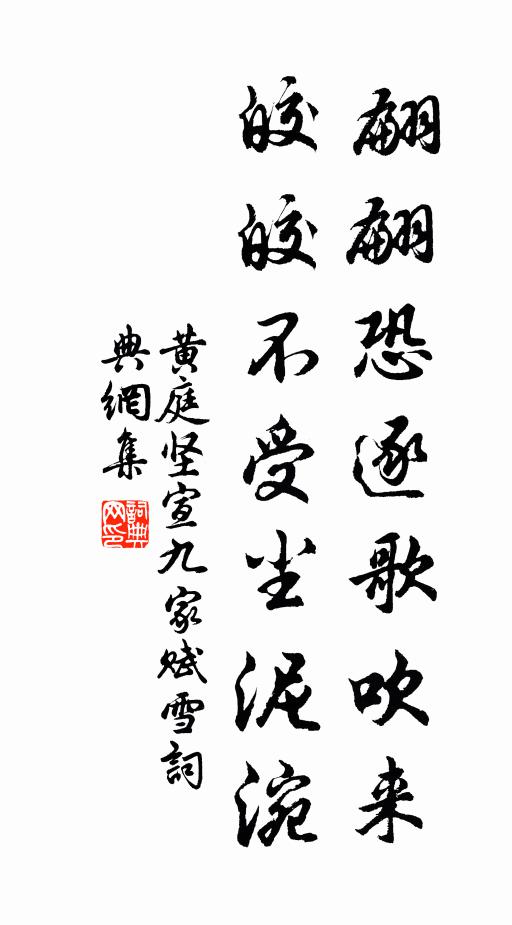 翩翩恐逐歌吹来
皎皎不受尘泥涴
黄庭坚宣九家赋雪詞
典網集
詞典网印